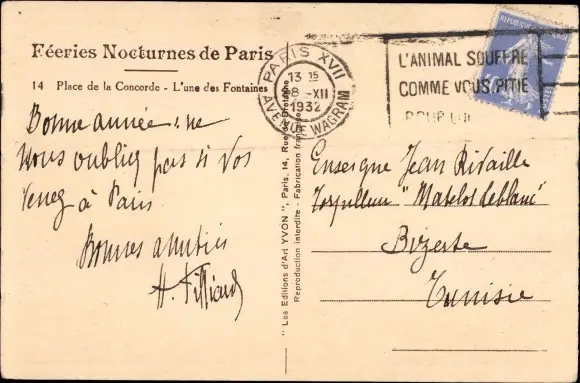 Féeries Nocturnes de Paris
14 Place de la Concorde - L'une des Fontaines
Bonne année: ne
nous oubliez pas si vos
venez à Paris
Bonnes amitiés
PARIS XVII
13 15
8 -XII
1932
AVENUE WAGRAM
L'ANIMAL SOUFFRE
COMME VOUS. PITIÉ
POUR LUI
"Les Editions d'Art YVON", Paris, 14, Rue de Bretagne
Reproduction interdite - Fabrication française
Enseigne Jean Rivaille
Torpilleur "Matelot Leblanc"
Bizerte
Tunisie